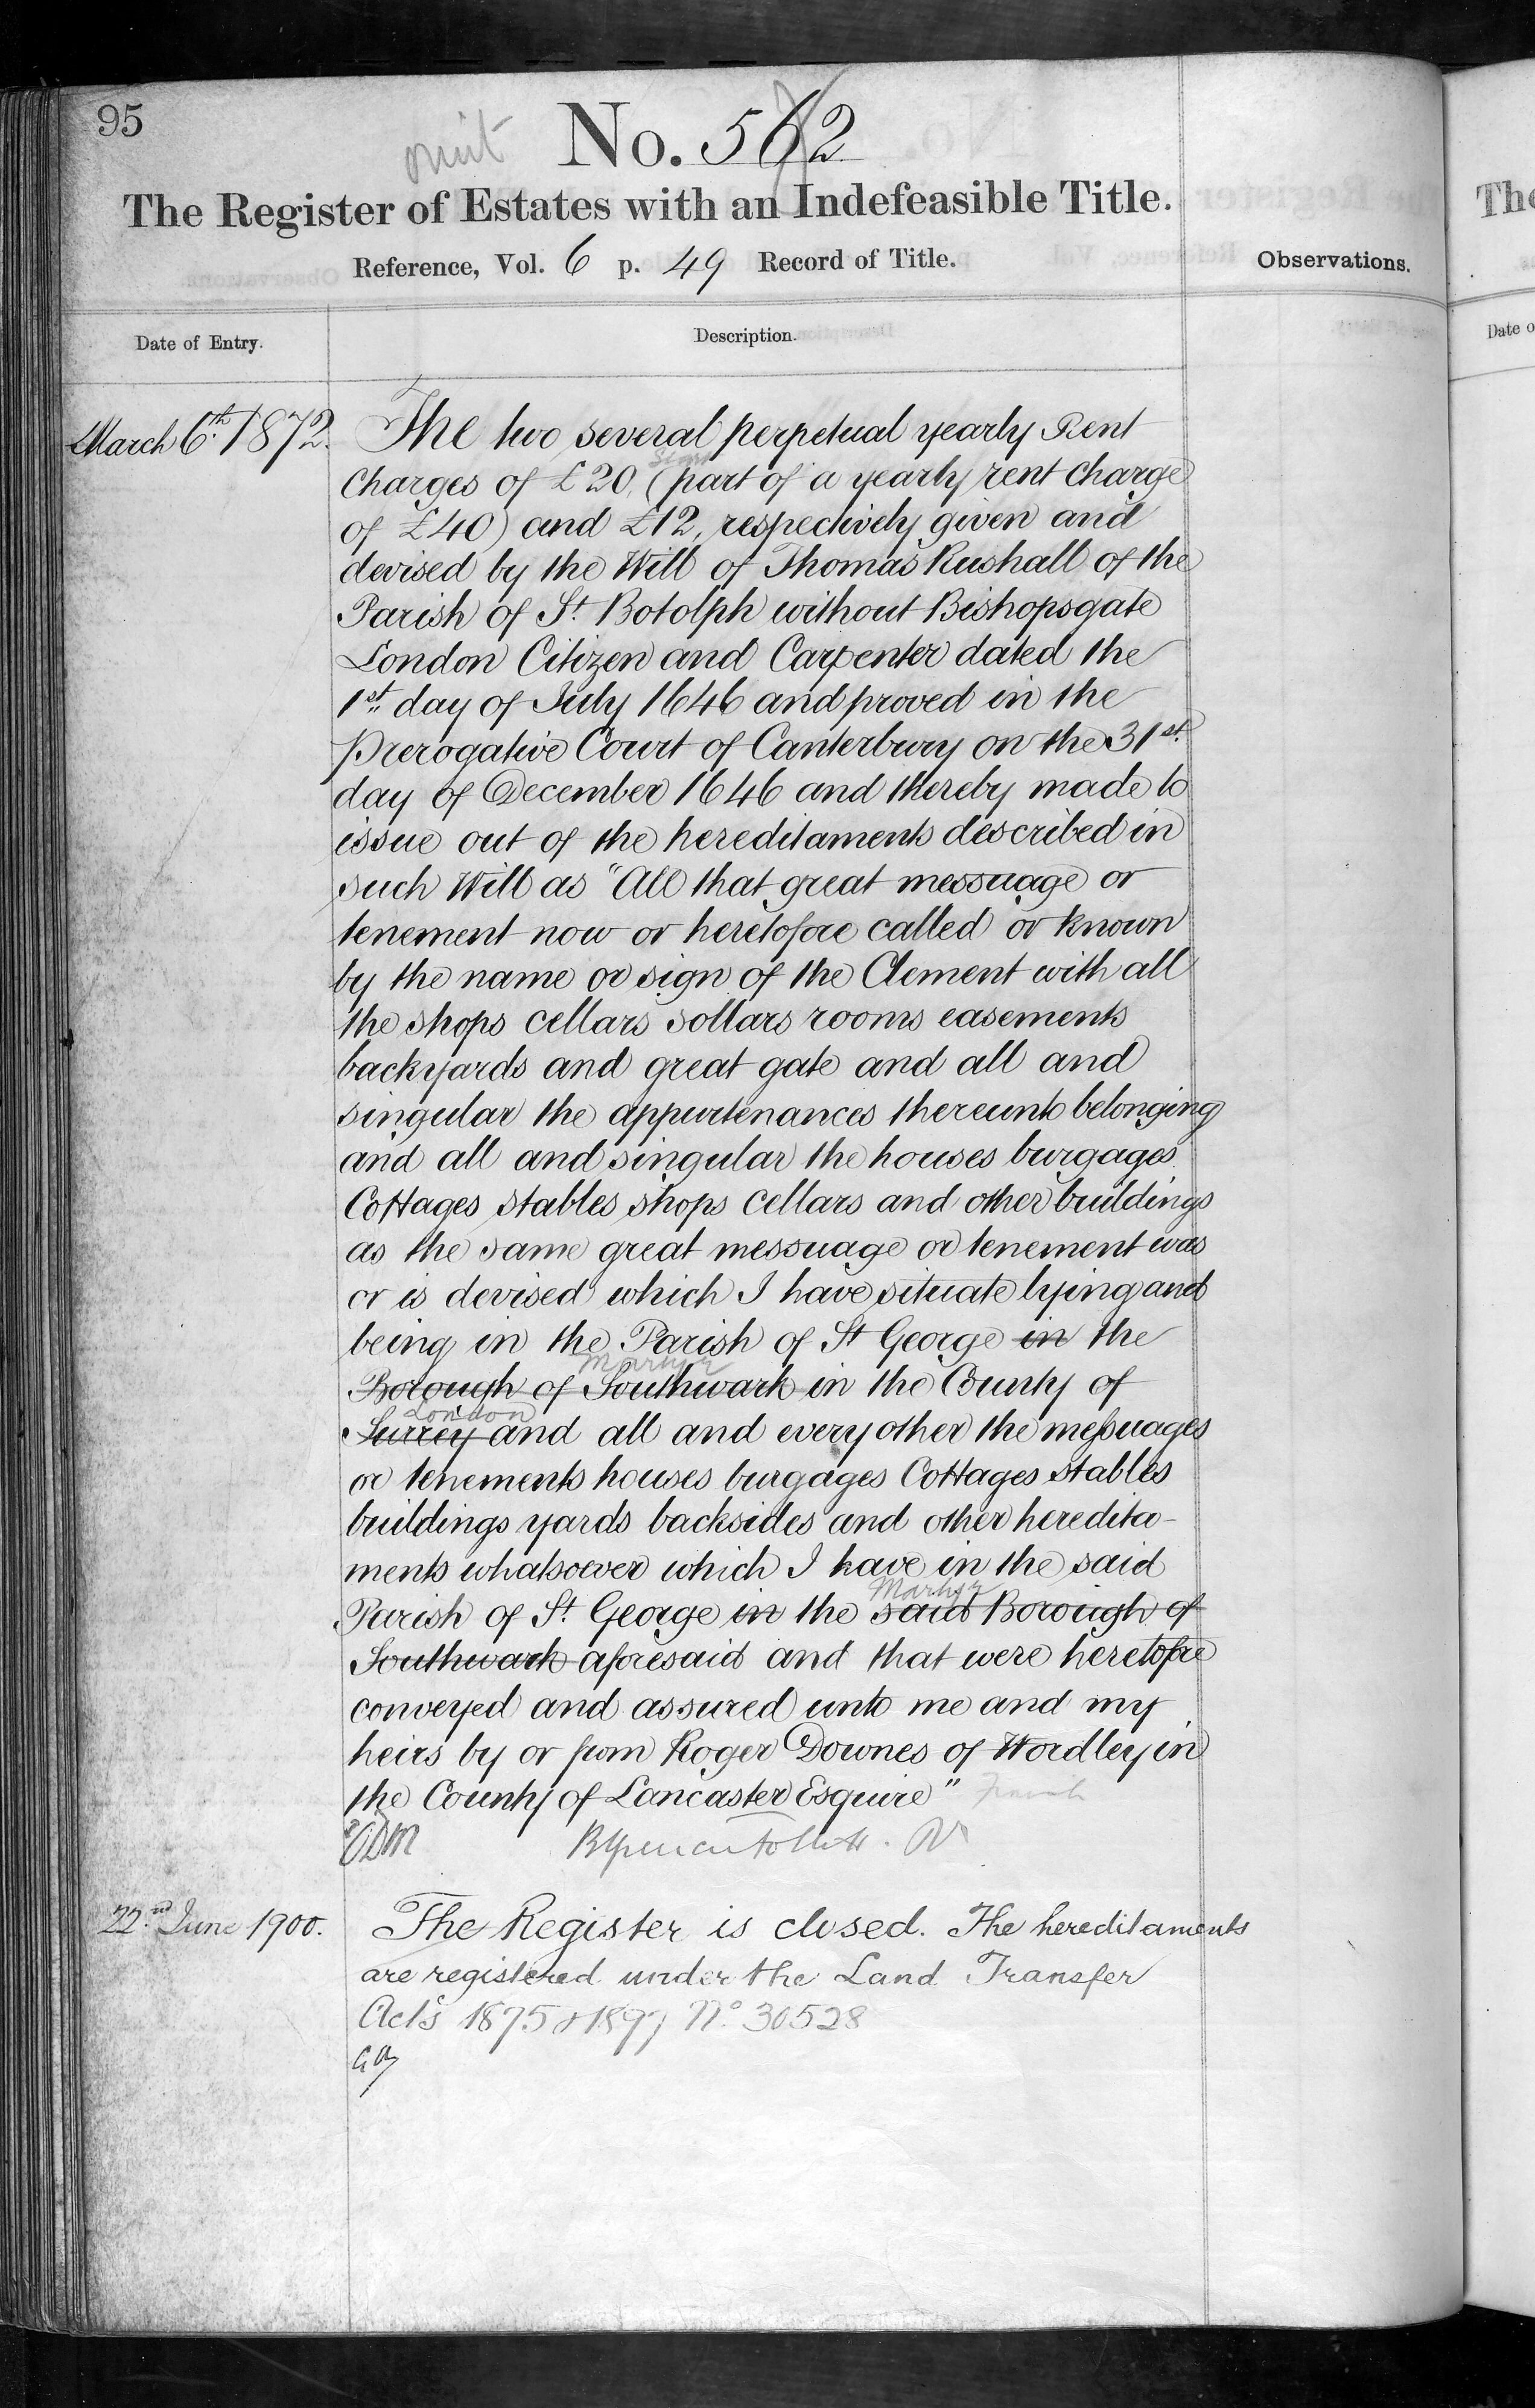 95
omit
No. 562
The Register of Estates with an Indefeasible Title.
Reference, Vol. 6 p. 49 Record of Title.
Observations.
Date of Entry.
Description.
March 6th. 1872.
The two several perpetual yearly Rent
Charges of £20, (part of a yearly rent Charge
of £40) and £12, respectively given and
devised by the Will of Thomas Rushall of the
Parish of St. Botolph without Bishopsgate
London Citizen and Carpenter dated the
1st. day of July 1646 and proved in the
Prerogative Court of Canterbury on the 31st.
day of December 1646 and thereby made to
issue out of the hereditaments described in
such Will as "All that great messuage or
tenement now or heretofore called or known
by the name or sign of the Clement with all
the shops cellars sollars rooms easements
backyards and great gate and all and
singular the appurtenances thereunto belonging
and all and singular the houses burgages
Cottages stables shops cellars and other buildings
as the same great messuage or tenement was
or is devised which I have situate lying and
being in the Parish of St George in the
Martyr
Borough of Southwark in the County of
London
Surrey and all and every other the messuages
or tenements houses burgages Cottages stables
buildings yards backsides and other heredita-
ments whatsoever which I have in the said
Martyr
Parish of St. George in the said Borough of
Southwark aforesaid and that were heretofore
conveyed and assured unto me and my
heirs by or from Roger Downes of Wordley in
the County of Lancaster Esquire"
22nd. June 1900.
The Register is closed. The hereditaments
are registered under the Land Transfer
Acts 1875 & 1897 No. 30528
The
Date o